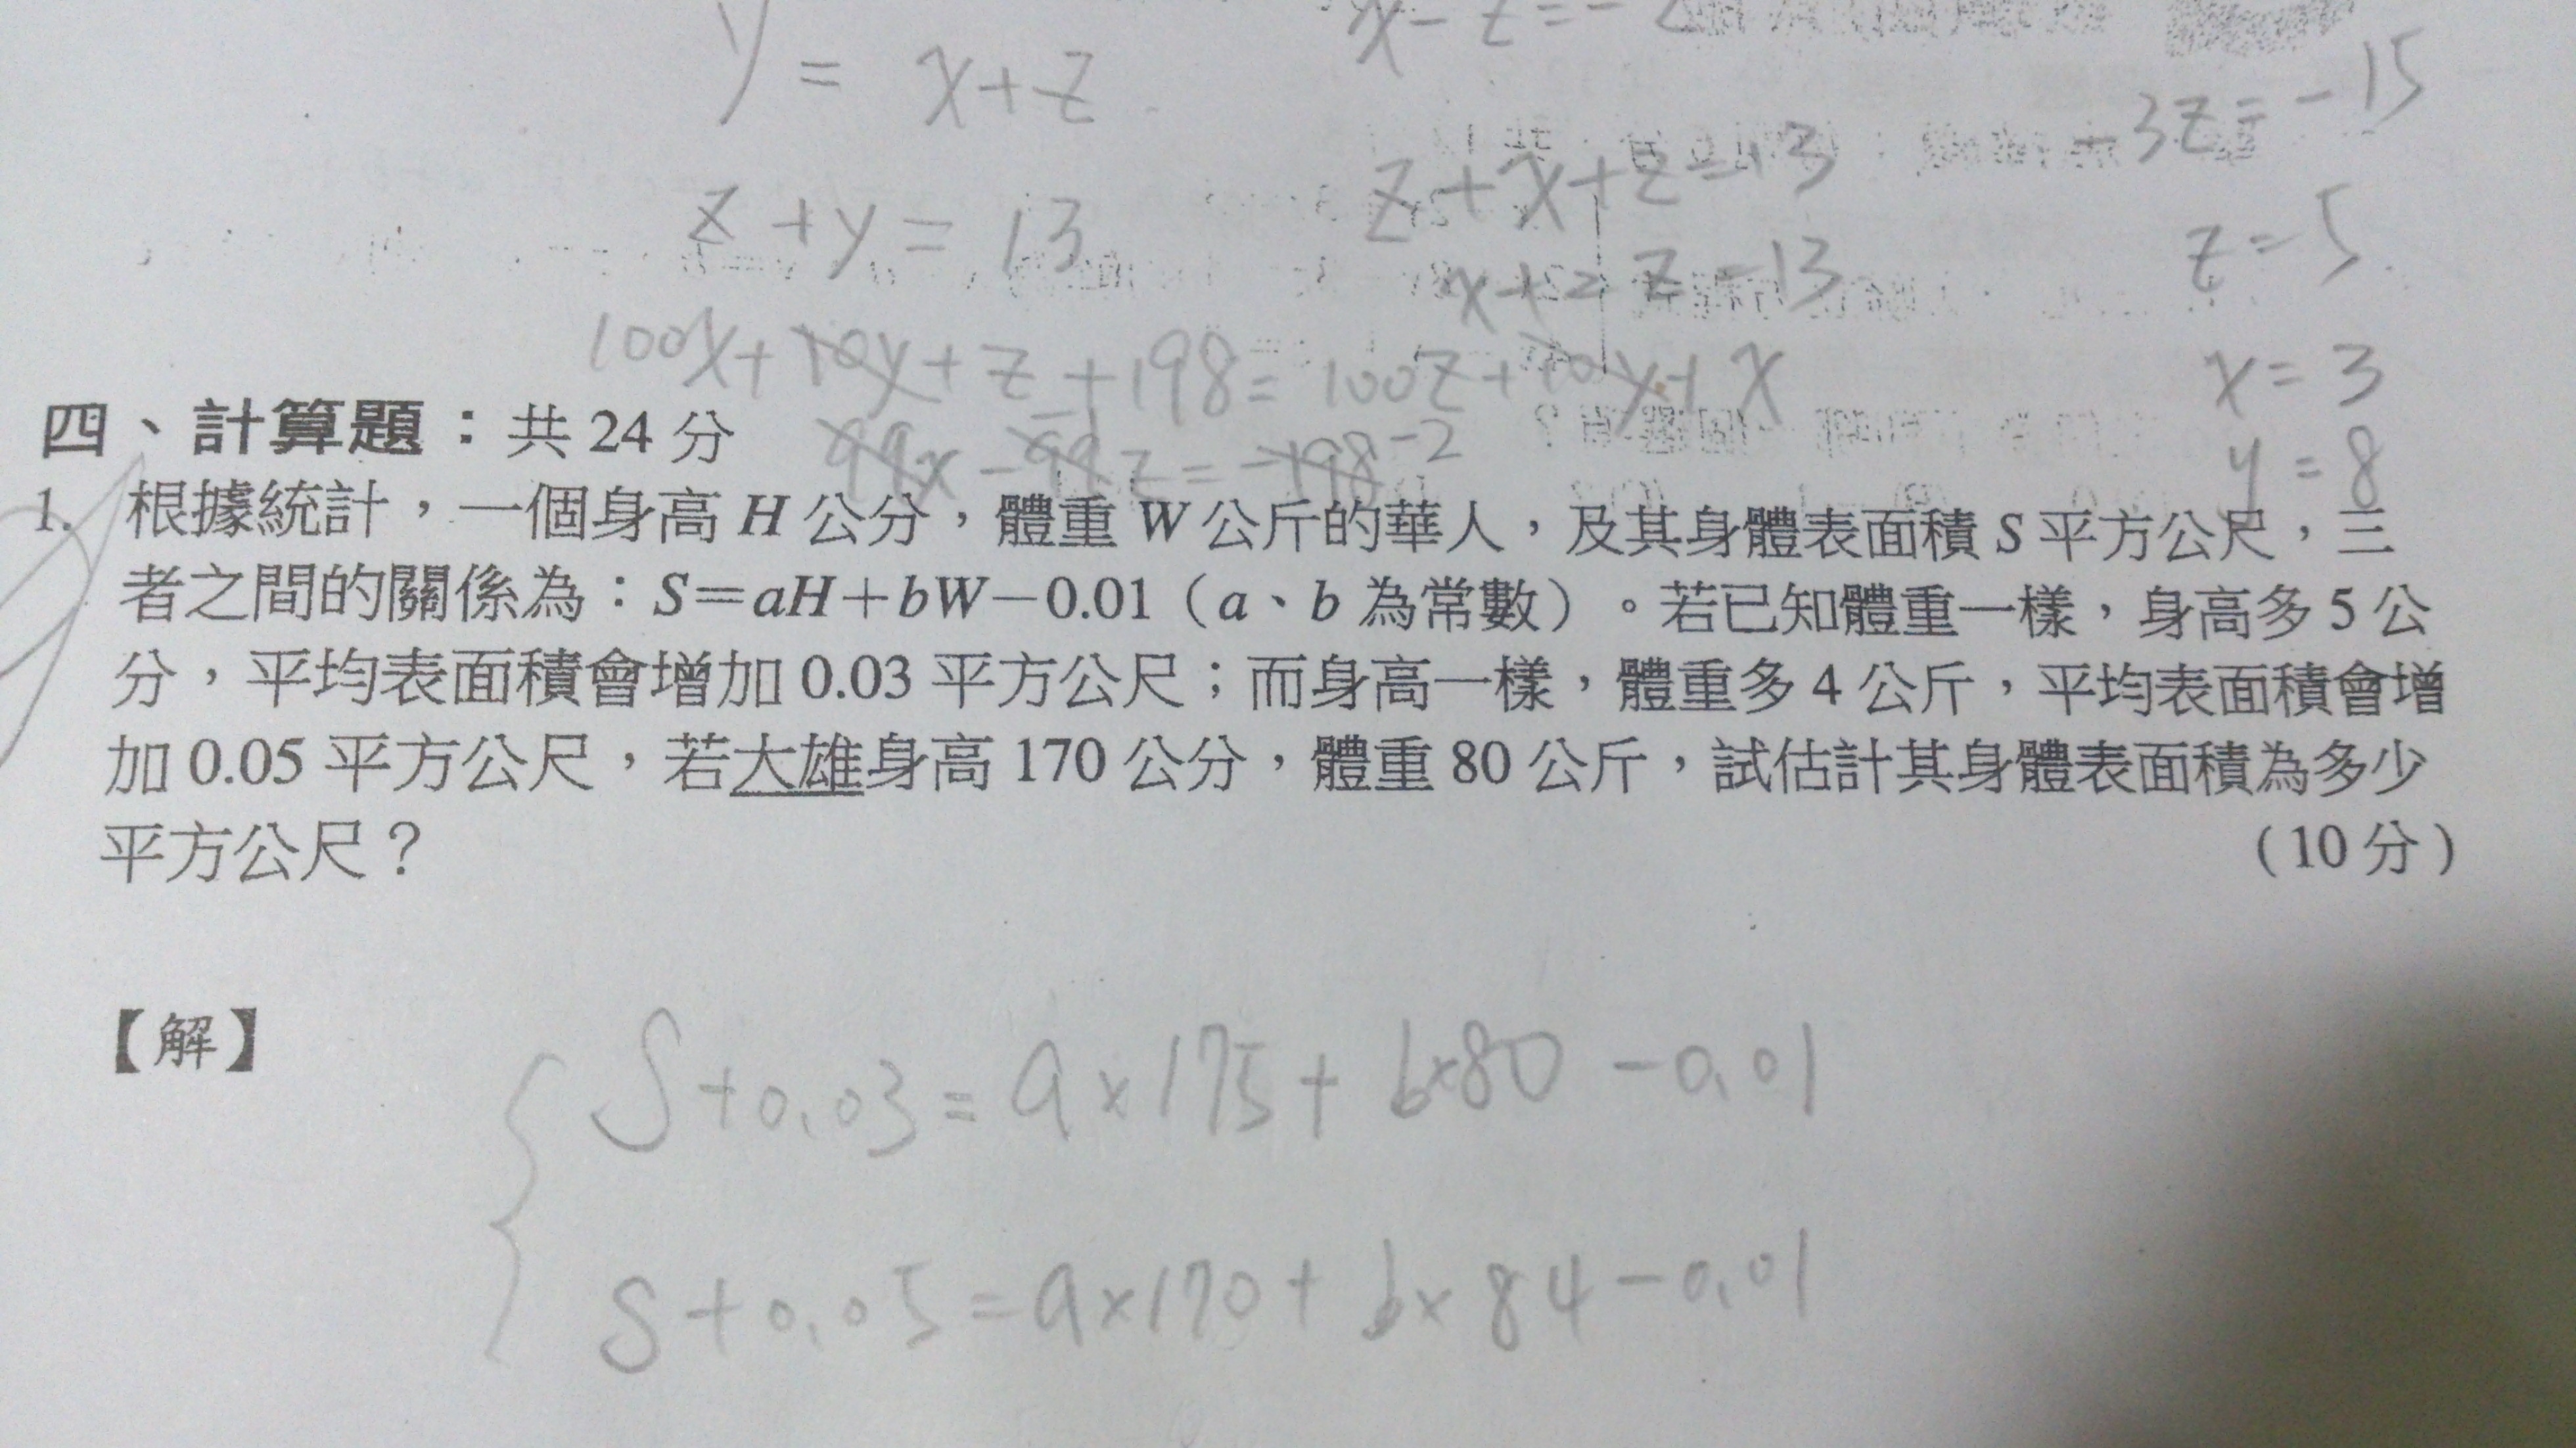 y = x+z
x-z=-2
-3z=-15
z+x+z=13
z+y=13
z=5
x+2z=13
100x+10y+z+198=100z+10y+x
x=3
四、計算題：共24分
99x-99z=-198 -2
y=8
1. 根據統計，一個身高H公分，體重W公斤的華人，及其身體表面積S平方公尺，三
者之間的關係為：S=aH+bW-0.01（a、b為常數）。若已知體重一樣，身高多5公
分，平均表面積會增加0.03平方公尺；而身高一樣，體重多4公斤，平均表面積會增
加0.05平方公尺，若大雄身高170公分，體重80公斤，試估計其身體表面積為多少
平方公尺？ （10分）
【解】
S+0.03=a×175+b×80-0.01
S+0.05=a×170+b×84-0.01